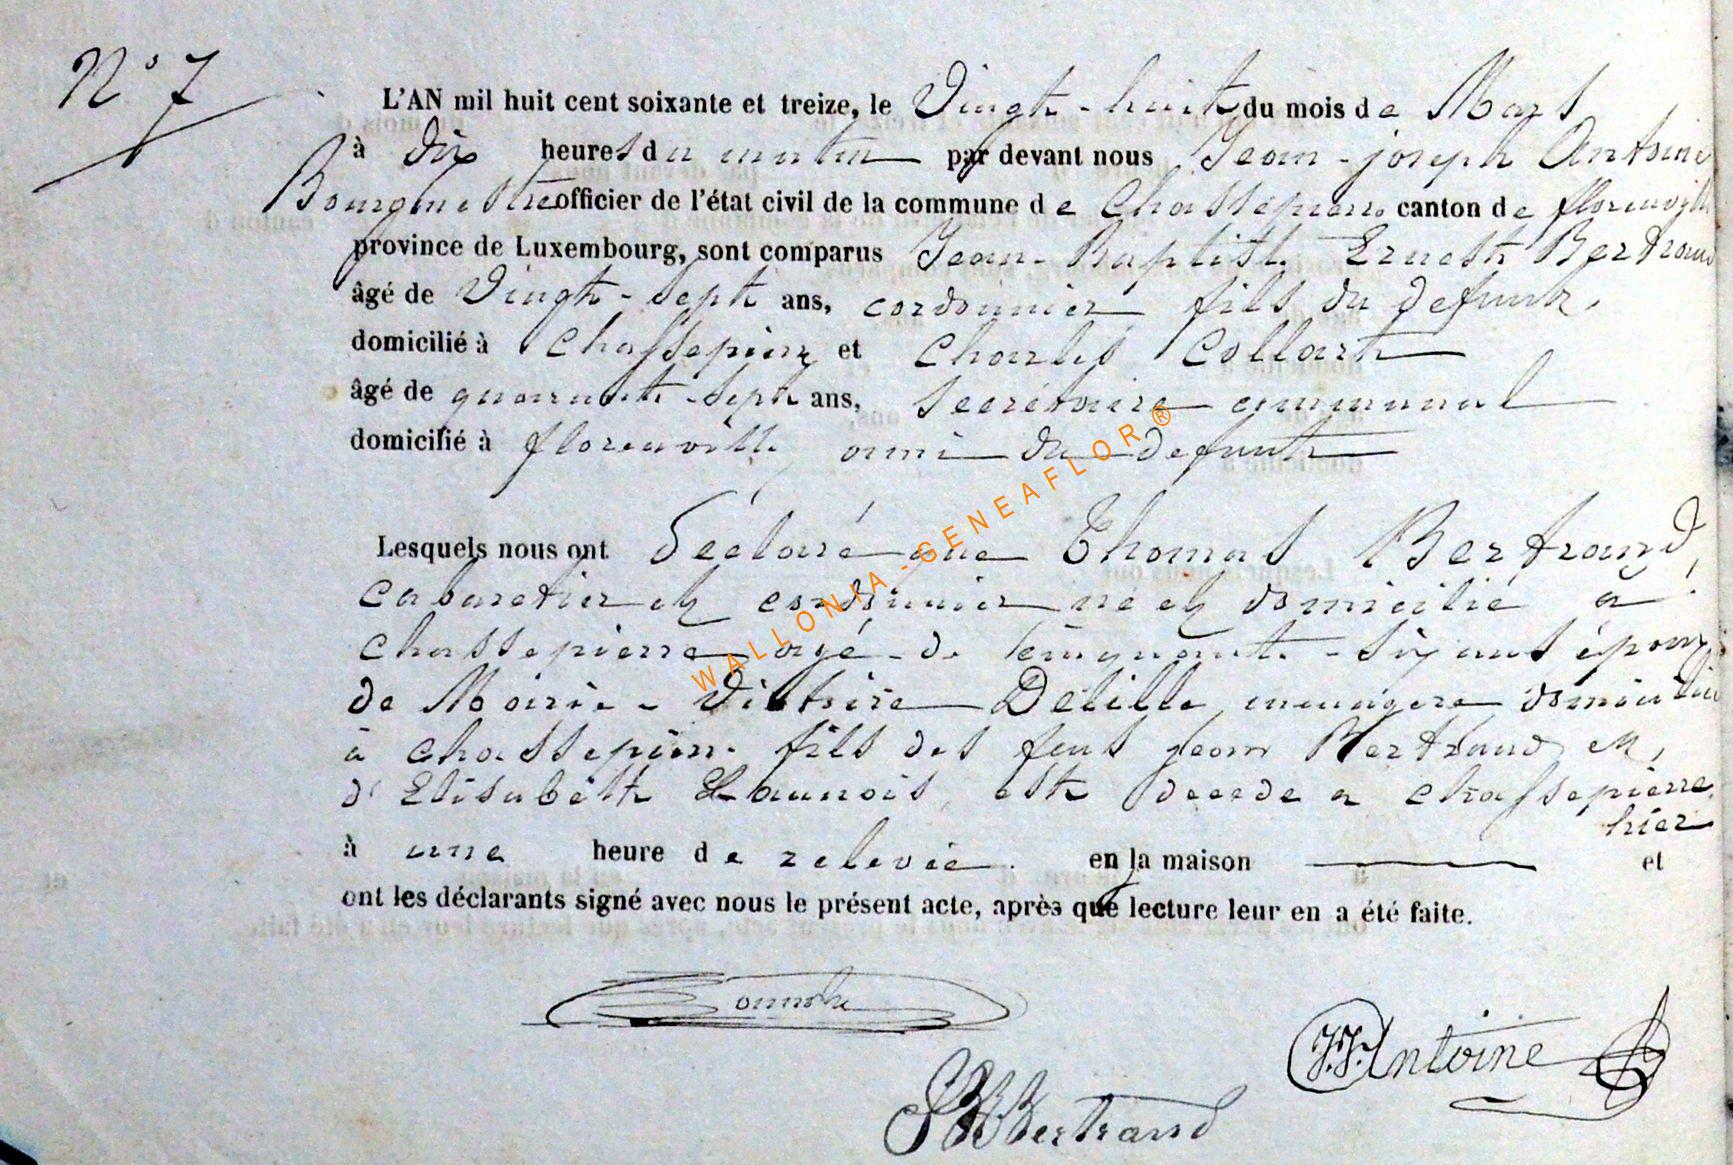 N° 7
L'AN mil huit cent soixante et treize, le Vingt-huit du mois de Mars
à dix heures du matin par devant nous Jean-joseph Antoine
Bourgmestre officier de l'état civil de la commune de Chassepierre canton de florenville
province de Luxembourg, sont comparus Jean-Baptiste Ernest Bertrand
âgé de Vingt-sept ans, cordonnier fils du defunt,
domicilié à Chassepierre et Charles Collart
âgé de quarante-sept ans, secrétaire communal
domicilié à florenville, ami du defunt
Lesquels nous ont déclaré que Thomas Bertrand,
cabaretier et cordonnier né et domicilié à
chassepierre agé de cinquante-six ans époux
de Marie-Victoire Delille menagere domicilié
à chassepierre fils des feus jean Bertrand et,
d'Elisabeth Launois, est decede a chassepierre
hier
à une heure de relevée en la maison et
ont les déclarants signé avec nous le présent acte, après que lecture leur en a été faite.
J.J. Antoine
JBEBertrand
WALLONIA-GENEAFLOR®